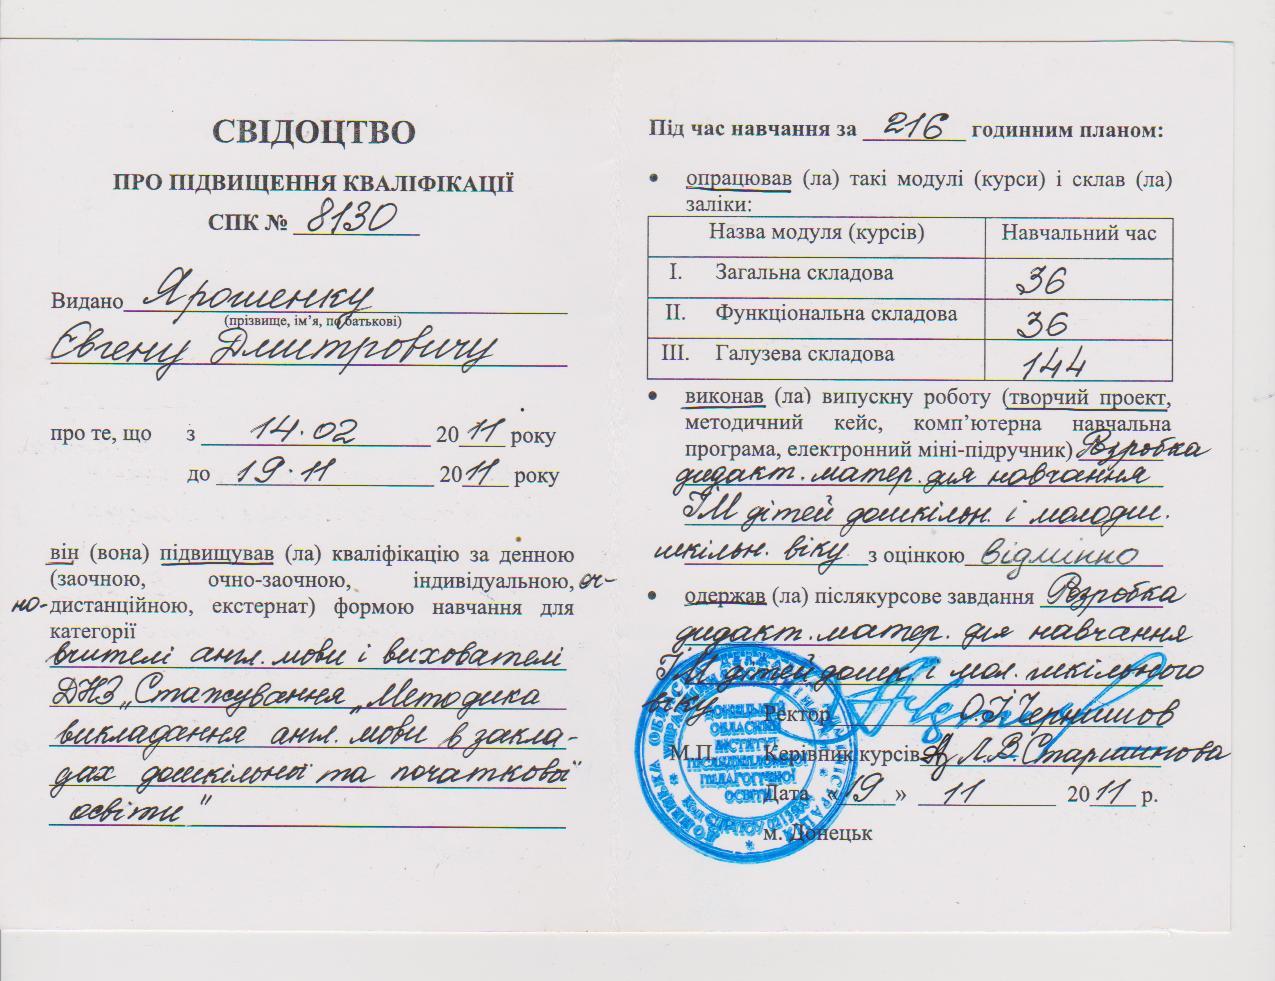 СВІДОЦТВО
ПРО ПІДВИЩЕННЯ КВАЛІФІКАЦІЇ
СПК № 8130
Видано Ярошенку
(прізвище, ім’я, по батькові)
Євгену Дмитровичу
про те, що з 14.02 2011 року
до 19.11 2011 року
він (вона) підвищував (ла) кваліфікацію за денною
(заочною, очно-заочною, індивідуальною, оч-
но-дистанційною, екстернат) формою навчання для
категорії
вчителі англ. мови і вихователі
ДНЗ „Стажування „Методика
викладання англ. мови в закла-
дах дошкільної та початкової
освіти"
Під час навчання за 216 годинним планом:
• опрацював (ла) такі модулі (курси) і склав (ла)
заліки:
Назва модуля (курсів) Навчальний час
I. Загальна складова 36
II. Функціональна складова 36
III. Галузева складова 144
• виконав (ла) випускну роботу (творчий проект,
методичний кейс, комп’ютерна навчальна
програма, електронний міні-підручник) Розробка
дидакт. матер. для навчання
ІМ дітей дошкільн. і молодш.
шкільн. віку з оцінкою відмінно
• одержав (ла) післякурсове завдання Розробка
дидакт. матер. для навчання
ІМ дітей дошк. і мол. шкільного
віку
Ректор О.І. Чернишов
М.П. Керівник курсів Л.В. Старшинова
Дата «19» 11 2011 р.
м. Донецьк
ДОНЕЦЬКИЙ
ОБЛАСНИЙ
ІНСТИТУТ
ПІСЛЯДИПЛОМНОЇ
ПЕДАГОГІЧНОЇ
ОСВІТИ